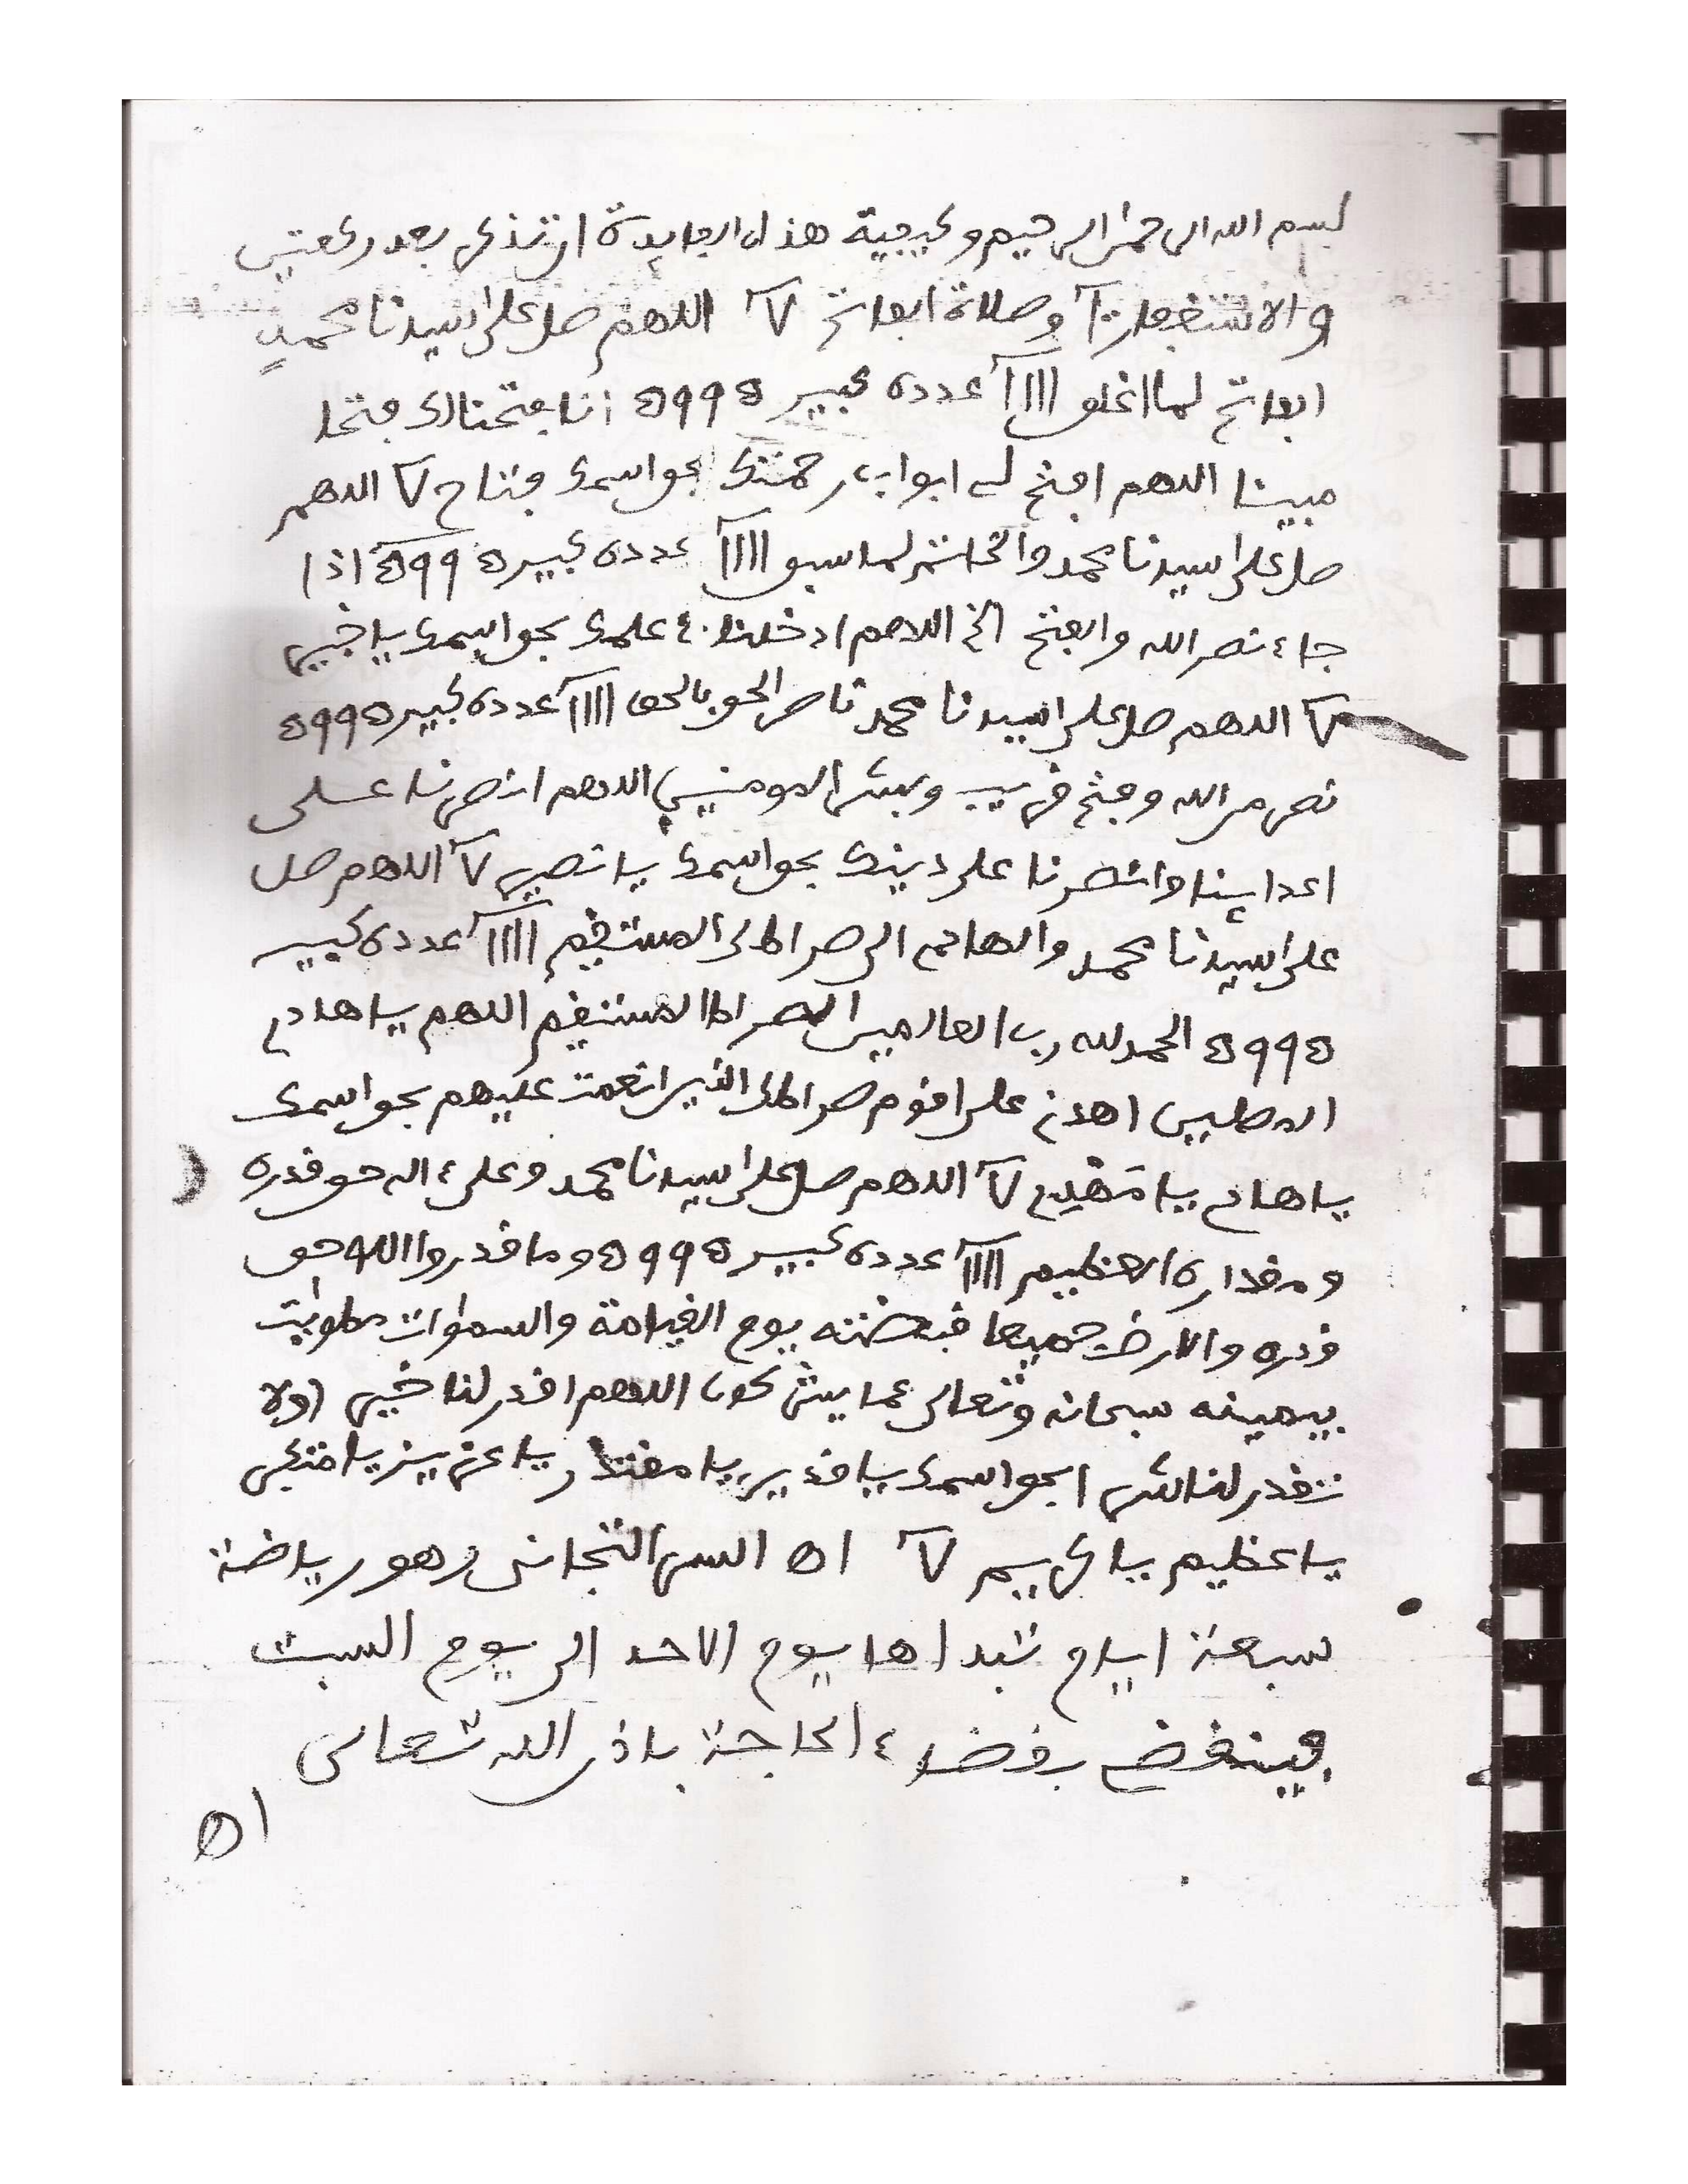 بسم الله الرحمن الرحيم وكيفية هذه الفايدة ان تذكر بعد ركعتين
والاستغفار وصلاة الفاتح اللهم صل على سيدنا محمد
الفاتح لما اغلق عدده كبير انا فتحنا لك فتحا
مبينا اللهم افتح لي ابواب رحمتك بحق اسمك فتاح اللهم
صل على سيدنا محمد والخاتم لما سبق عدده كبير اذا
جاء نصر الله والفتح الخ اللهم ادخلنا علمك بحق اسمك يا خبير
اللهم صل على سيدنا محمد ناصر الحق بالحق عدده كبير
نصر من الله وفتح قريب وبشر المومنين اللهم انصرنا على
اعداينا وانصرنا على دينك بحق اسمك يا نصير اللهم صل
على سيدنا محمد والهادي الى صراطك المستقيم عدده كبير
الحمد لله رب العالمين الصراط المستقيم اللهم يا هادي
المضلين اهدني على اقوم صراط الذين انعمت عليهم بحق اسمك
يا هادي يا مهدي اللهم صل على سيدنا محمد وعلى ءاله حق قدره
ومقداره العظيم عدده كبير وما قدروا الله حق
قدره والارض جميعا قبضته يوم القيامة والسموات مطويت
بيمينه سبحانه وتعالى عما يشركون اللهم اقدر لنا خيرا ولا
تقدر لنا شرا بحق اسمك يا قدير يا مقتدر يا عزيز يا متكبر
يا عظيم يا كريم اه السر التجاني وهو رياضة
سبعة ايام تبداها يوم الاحد الى يوم السبت
فينقضي الحاجة باذن الله تعالى
اه